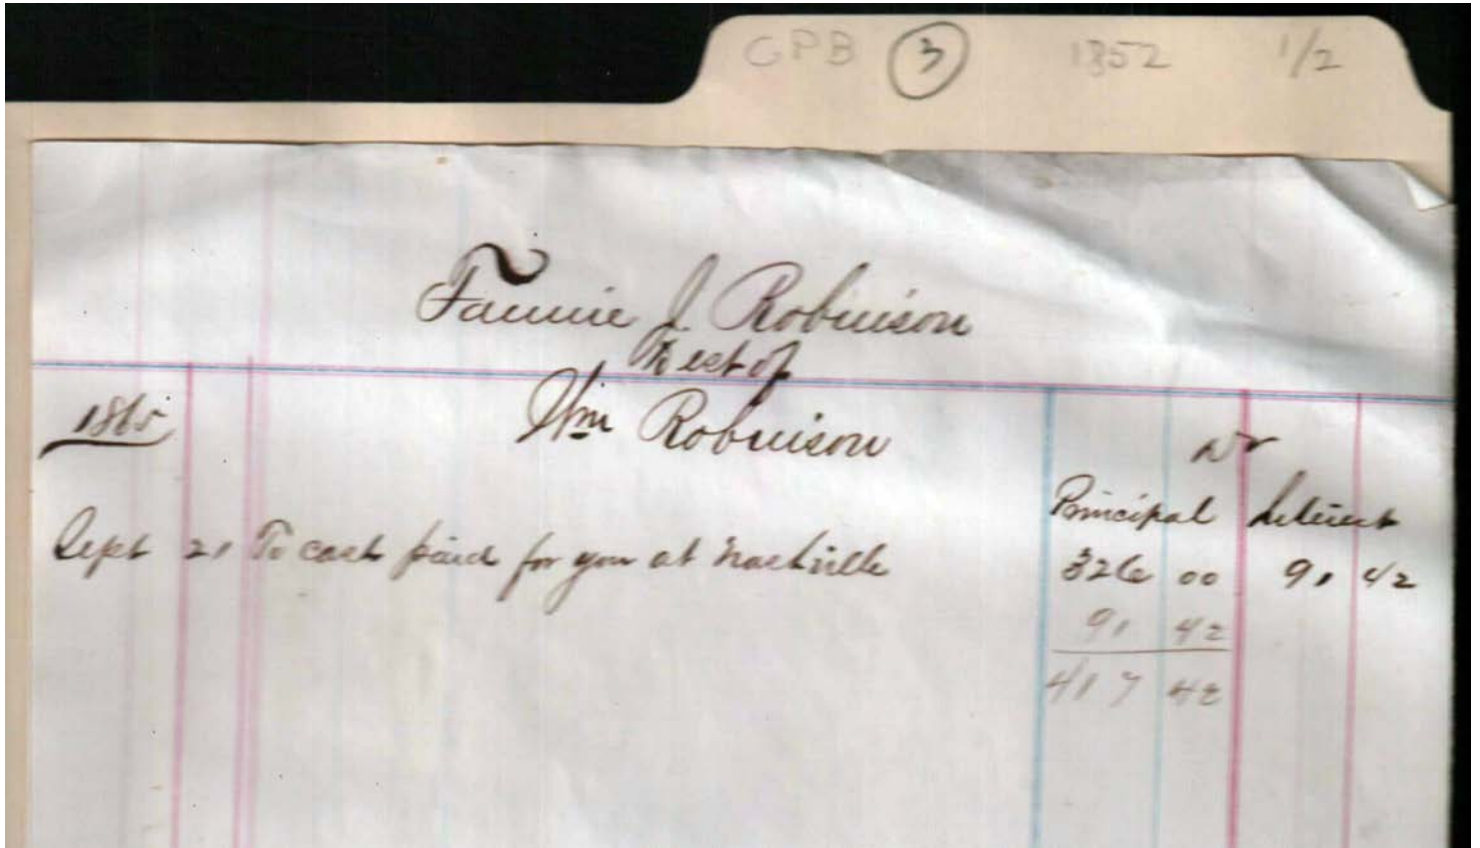 GPB 3 1852 1/2
Fannie J. Robinson
To est of
Wm Robinson
1865
Dr
Principal Interest
Sept 21 To cash paid for you at Nashville 326 00 91 42
91 42
417 42